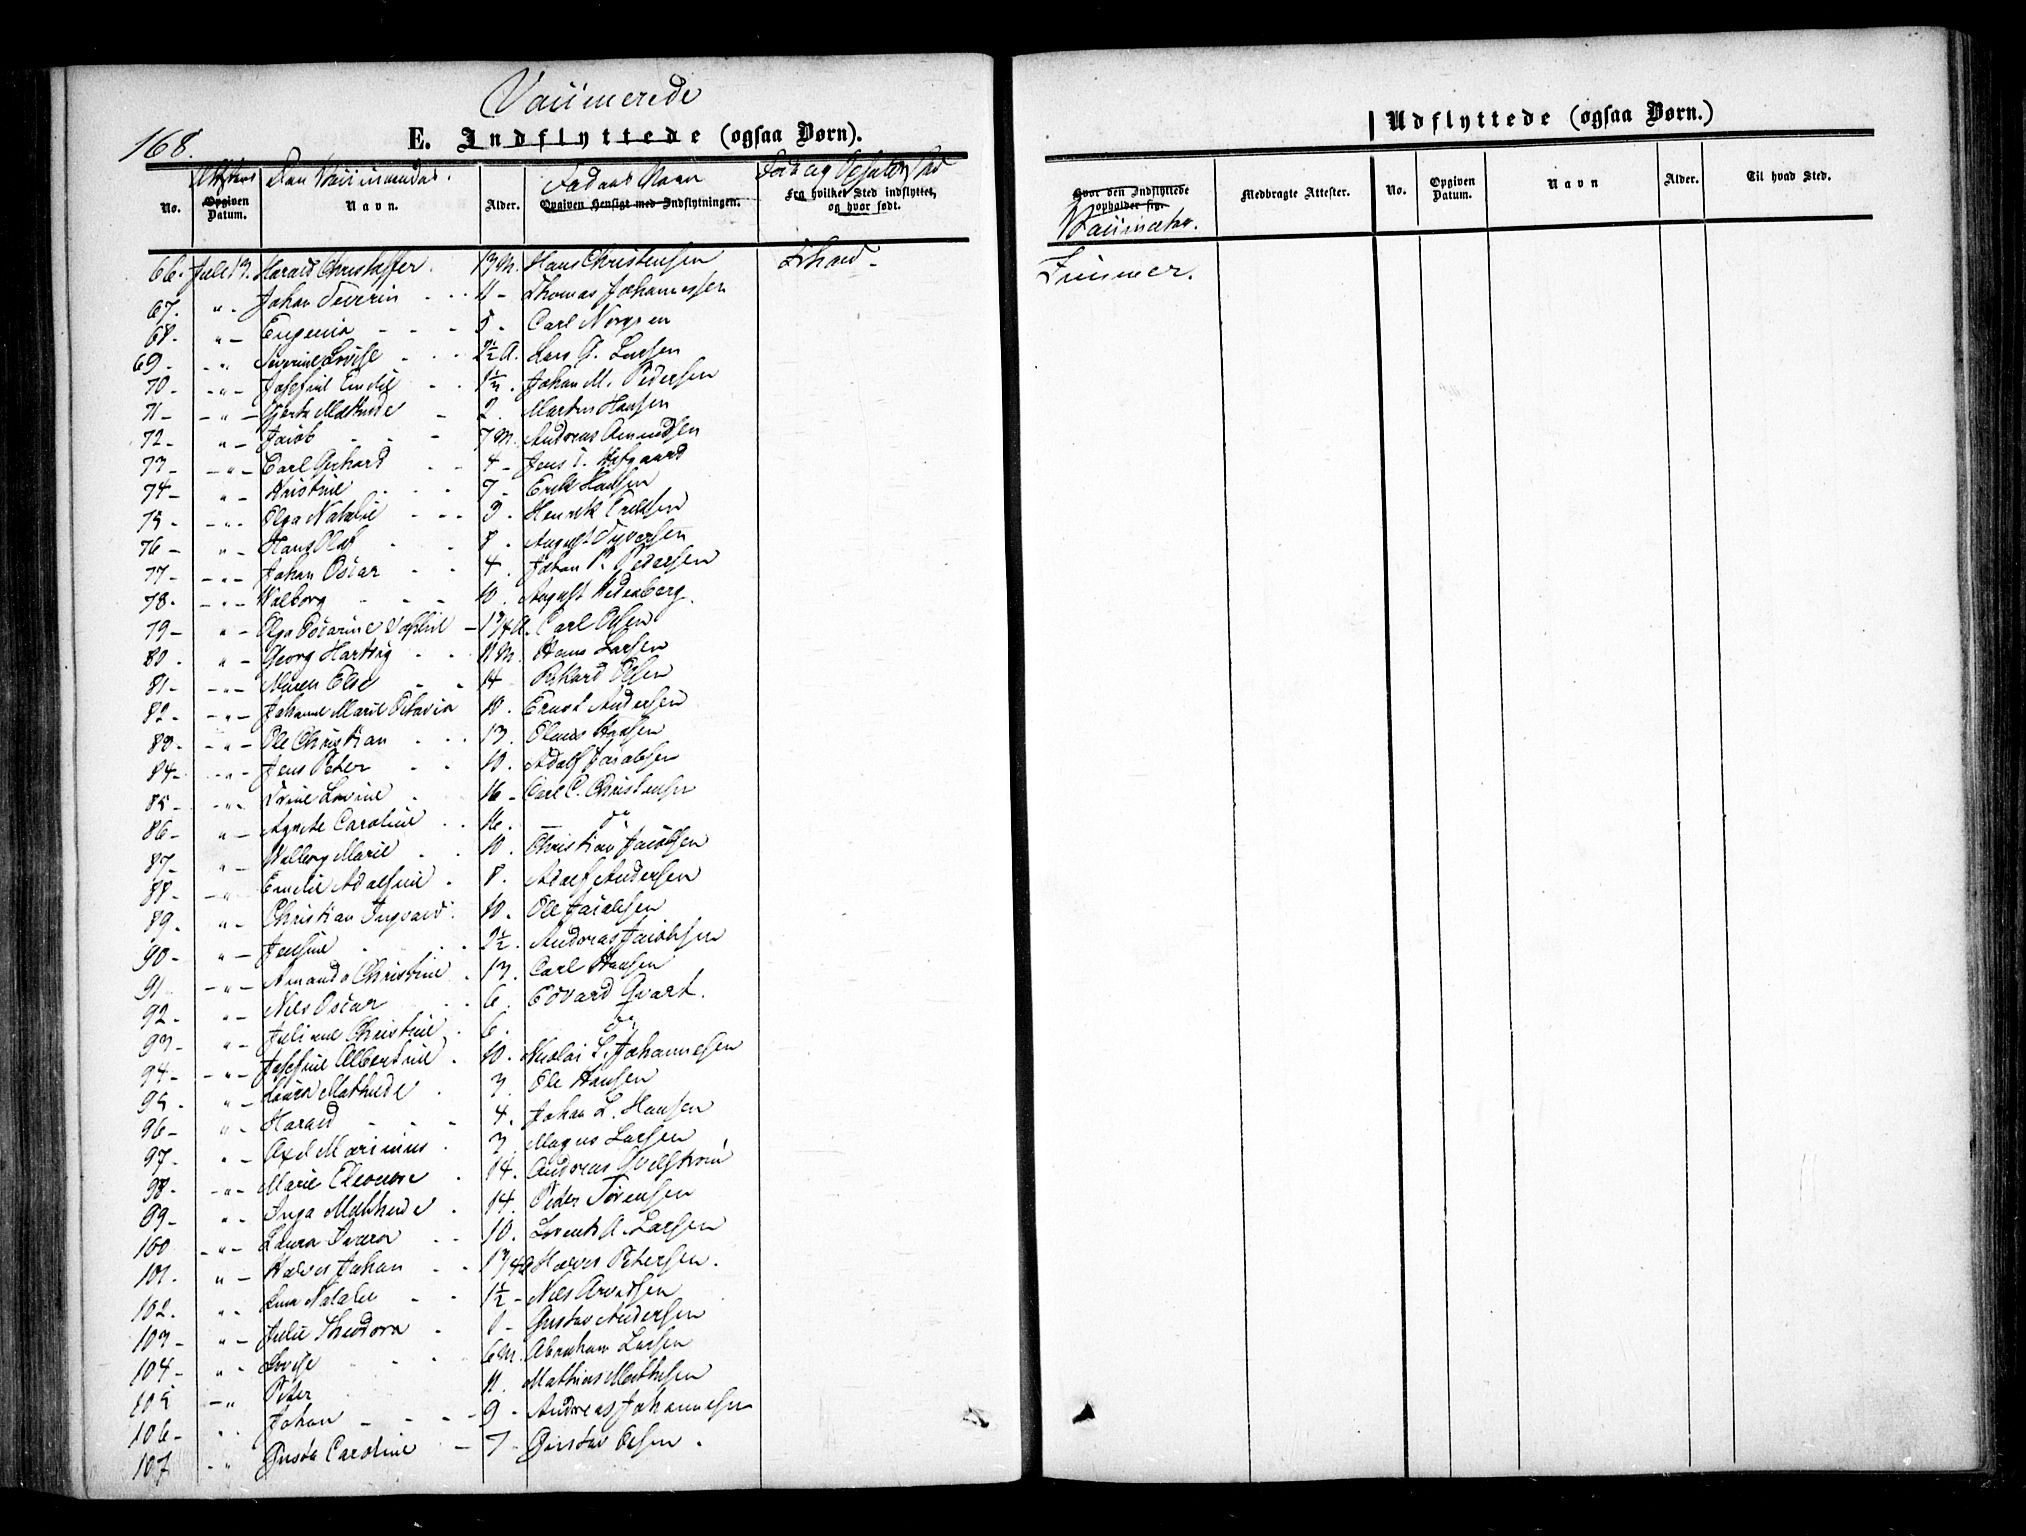 168.
Vaccinerede
E. Indflyttede (ogsaa Børn).
Attestens Den Vaccineredes Fadrens Navn Føde og Opholds Sted
No. Opgiven Datum. Navn. Alder. Opgiven Hensigt med Indflytningen. Fra hvilket Sted indflyttet, og hvor født.
66. Juli 13. Harald Christoffer. 13 M. Hans Christensen
67. " Johan Severin 11 - Thomas Johannessen
68. " Eugenia 5 - Carl
69. " Severine Lovise 2½ A. Lars G. Larsen
70. " Josefine Emilie 1½. Johan M. Pedersen
71 " Mathilde 2. Martin Hansen
72. " Jacob 7 M. Andreas Amundsen
73 " Carl Gerhard 4 - Jens
74 " Kristine 7 - Erik Hansen
75 " Olga Natalie 9. Henrik
76 " Hans Olaf 8. August Syversen
77 " Johan Oscar 4. Johan P. Pedersen
78. " Walborg 10. August
79 " Olga Oscarine Sophie Carl Olsen
80. " Georg Hartvig 11 M. Hans Larsen
81 " Maren Elise 14 Rikard Olsen
82 " Johanne Marie Octavia 10. Ernst Andersen
83 " Ole Christian 13. Hansen
84 " Jens Peter 10. Adolf Jacobsen
85 " Lovine 16 - Carl C. Christensen
86 " Agnete Caroline 16. do
87 " Walborg Marie 10. Christian Jacobsen
88 " Emilie Adolfine 8. Adolf Andersen
89. " Christian Ingvald 10. Ole Jacobsen
90 " Jensine ½. Andreas Jacobsen
91 " Amanda Christine 13. Carl Hansen
92 " Nils Oscar 6. Edvard Qvart.
93 " Juliane Christine 6. do
94 " Josefine Albertine 10. Nicolai L. Johannesen
95 " Laura Mathilde 3. Ole Hansen
96 " Harald 4. Johan L. Hansen
97 " Axel Marinius 3. Magnus Larsen
98 " Marie Eleonore 14. Andreas
99 " Inga Mathilde 14. Peder Sørensen
100 " Laura 10. Lorents A. Larsen
101. " Johan Petersen.
102. " Natalie 1½ - Nils
103 " Julie Theodora Gustav Andersen
104 " Lovise 6 M. Abraham Larsen
105 " Peter 11. Mathias Mathisen
106 " Johan 9 - Andreas Johannesen
107 " Caroline 7 - Gustav Olsen.
Udflyttede (ogsaa Børn.)
Hvor den Indflyttede opholder sig. Medbragte Attester. No. Opgiven Datum. Navn Alder. Til hvad Sted.